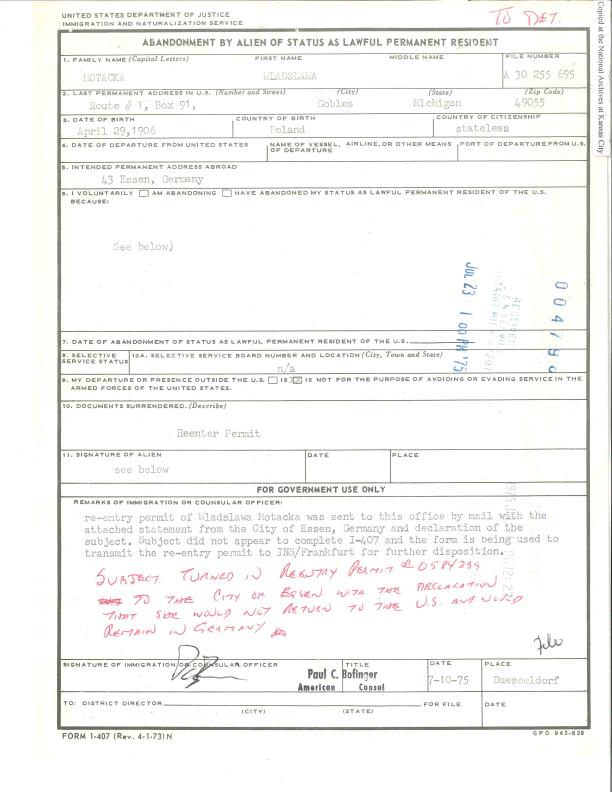 UNITED STATES DEPARTMENT OF JUSTICE
IMMIGRATION AND NATURALIZATION SERVICE
TO DET.
ABANDONMENT BY ALIEN OF STATUS AS LAWFUL PERMANENT RESIDENT
1. FAMILY NAME (Capital Letters) FIRST NAME MIDDLE NAME FILE NUMBER
MOTACKA WLADSLAWA A 30 255 695
2. LAST PERMANENT ADDRESS IN U.S. (Number and Street) (City) (State) (Zip Code)
Route # 1, Box 91, Gobles Michigan 49055
3. DATE OF BIRTH COUNTRY OF BIRTH COUNTRY OF CITIZENSHIP
April 29,1906 Poland stateless
4. DATE OF DEPARTURE FROM UNITED STATES NAME OF VESSEL, AIRLINE, OR OTHER MEANS OF DEPARTURE PORT OF DEPARTURE FROM U.S.
5. INTENDED PERMANENT ADDRESS ABROAD
43 Essen, Germany
6. I VOLUNTARILY AM ABANDONING HAVE ABANDONED MY STATUS AS LAWFUL PERMANENT RESIDENT OF THE U.S.
BECAUSE:
See below)
JUL 23 1 00 PM '75
RECEIVED
7. DATE OF ABANDONMENT OF STATUS AS LAWFUL PERMANENT RESIDENT OF THE U.S.
8. SELECTIVE SERVICE STATUS 10A. SELECTIVE SERVICE BOARD NUMBER AND LOCATION (City, Town and State)
n/a
9. MY DEPARTURE OR PRESENCE OUTSIDE THE U.S. IS IS NOT FOR THE PURPOSE OF AVOIDING OR EVADING SERVICE IN THE
ARMED FORCES OF THE UNITED STATES.
10. DOCUMENTS SURRENDERED. (Describe)
Reenter Permit
11. SIGNATURE OF ALIEN DATE PLACE
see below
FOR GOVERNMENT USE ONLY
REMARKS OF IMMIGRATION OR COUNSULAR OFFICER:
re-entry permit of Wladslawa Motacka was sent to this office by mail with the
attached statement from the City of Essen, Germany and declaration of the
subject. Subject did not appear to complete I-407 and the form is being used to
transmit the re-entry permit to INS/Frankfurt for further disposition.
SUBJECT TURNED IN REENTRY PERMIT # 0584239
TO THE CITY OF ESSEN WITH THE DECLARATION
THAT SHE WOULD NOT RETURN TO THE U.S. AND WOULD
REMAIN IN GERMANY
File
SIGNATURE OF IMMIGRATION OR COUNSULAR OFFICER TITLE DATE PLACE
Paul C. Bofinger
American Consul
7-10-75 Duesseldorf
TO: DISTRICT DIRECTOR FOR FILE DATE
(CITY) (STATE)
FORM I-407 (Rev. 4-1-73) N GPO 943-828
Copied at the National Archives at Kansas City